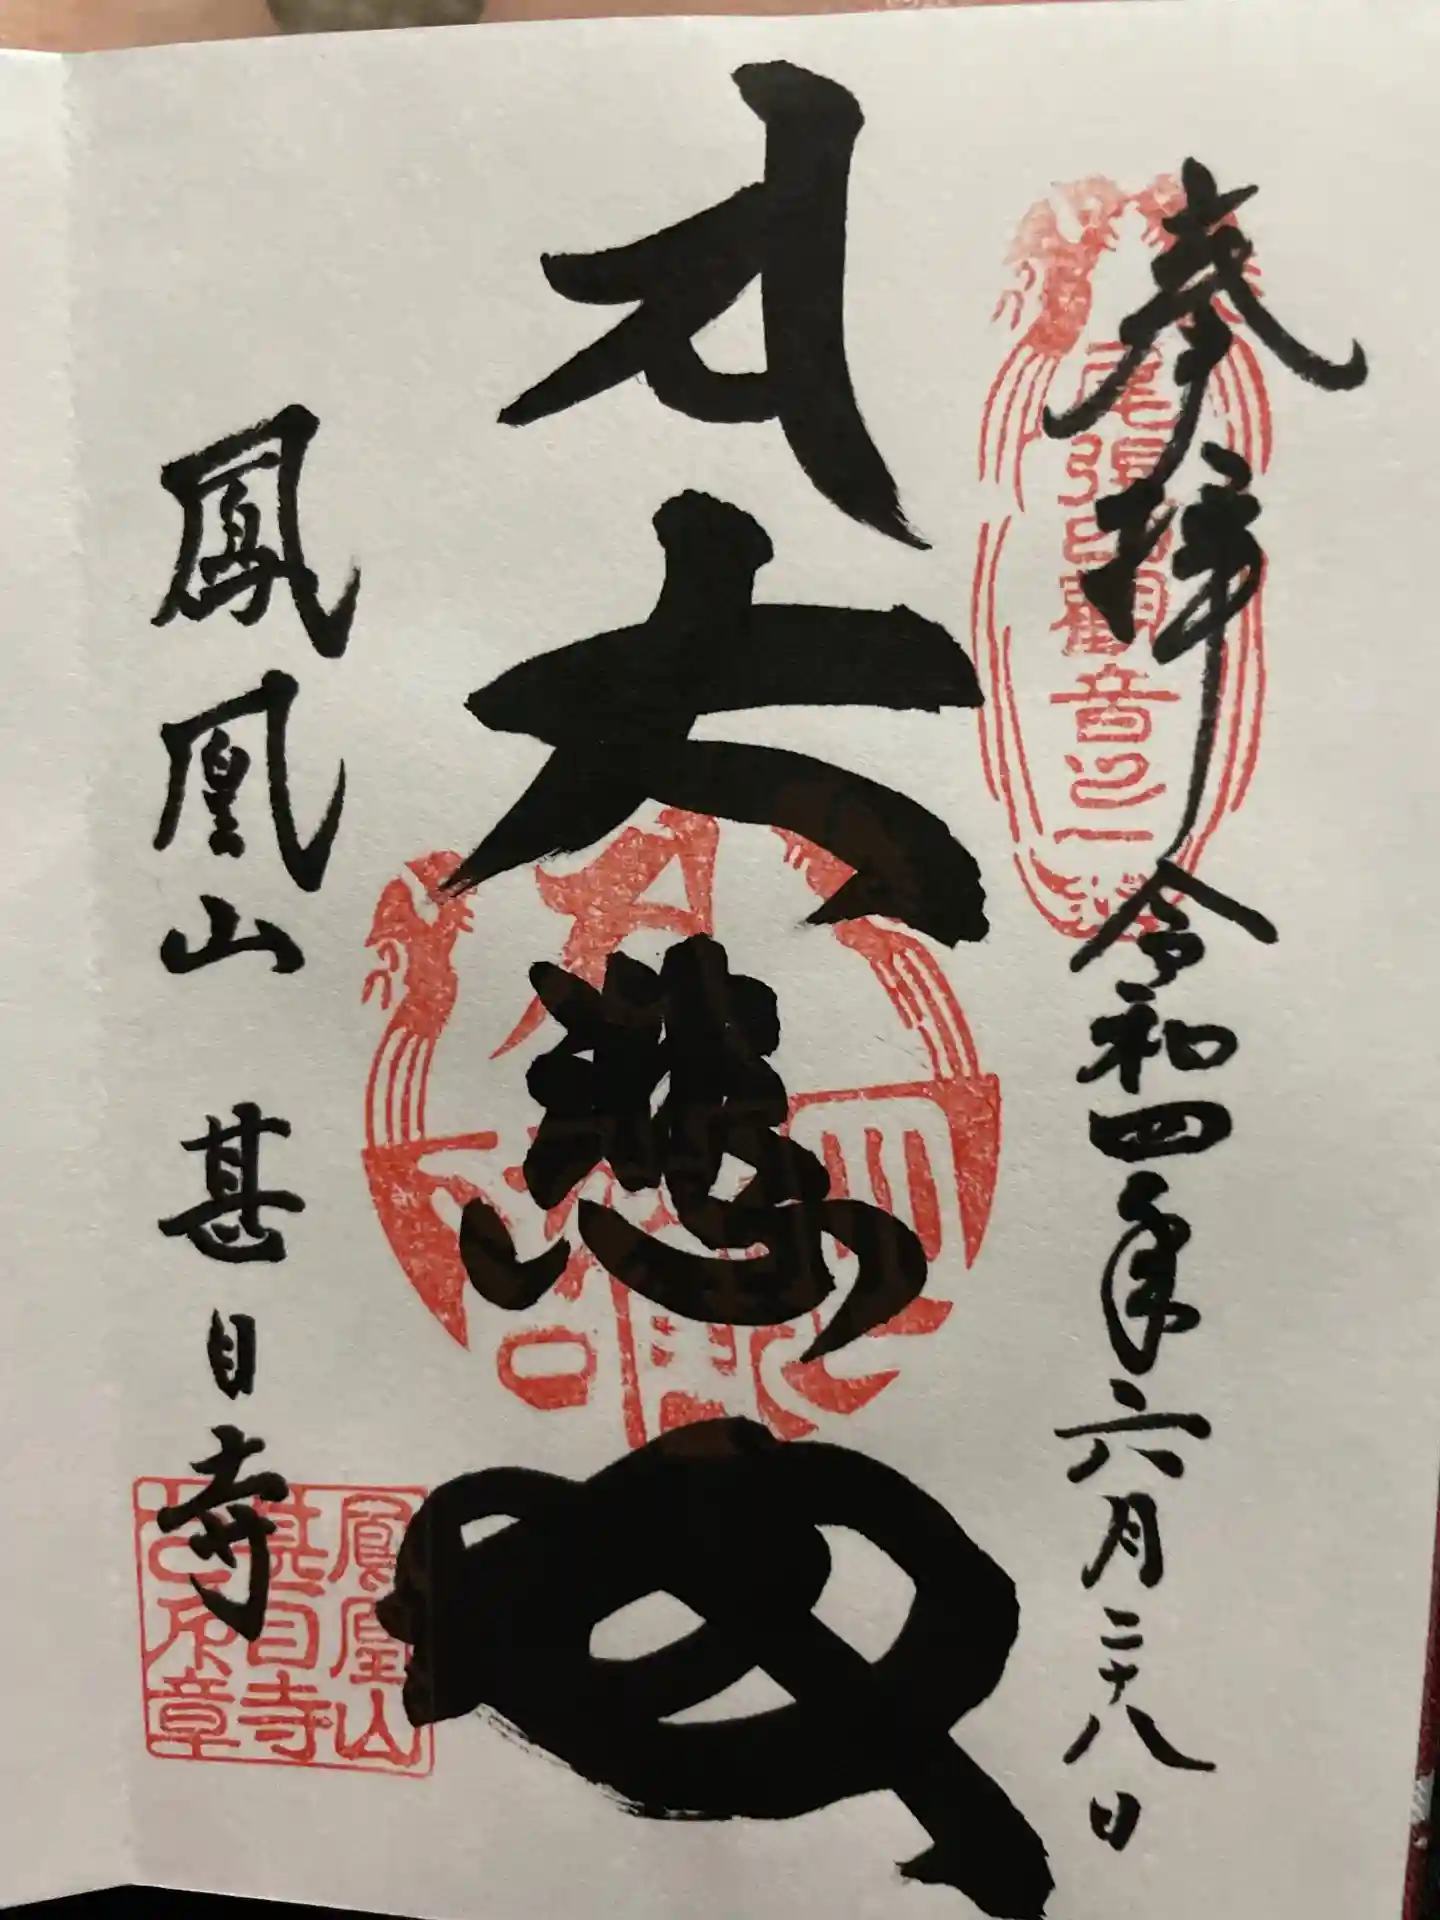 奉拝
令和四年六月二十八日
大悲殿
鳳凰山 甚目寺
尾張四観音之一
鳳凰山
甚目寺
之印章